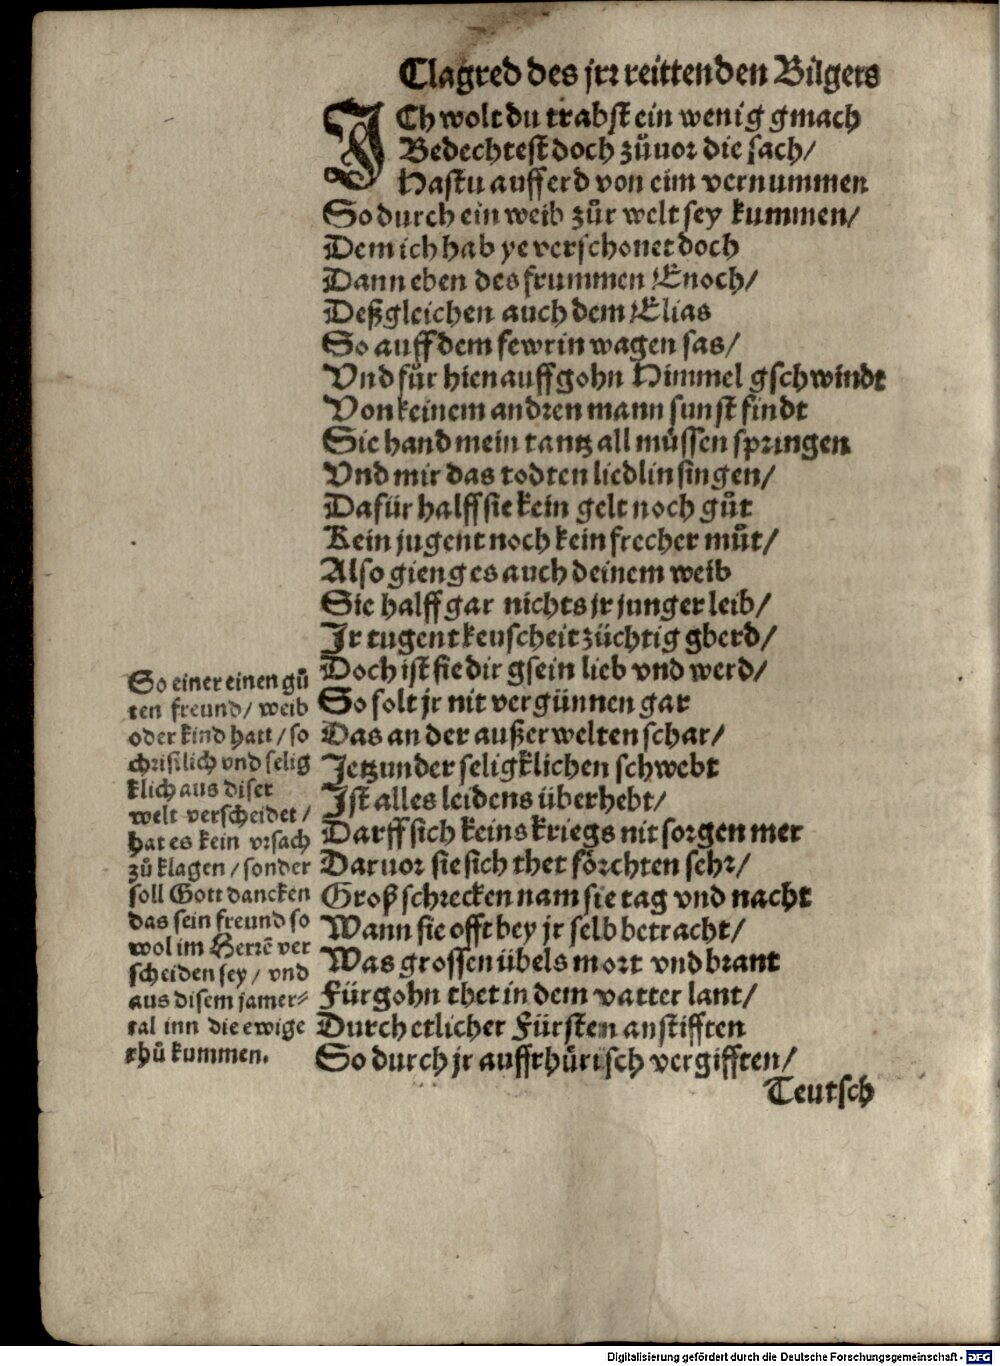 Clagred des jrr reittenden Bilgers
ICh wolt du trabst ein wenig gmach
Bedechtest doch zůuor die sach/
Hastu aufferd von eim vernummen
So durch ein weib zůr welt sey kummen/
Dem ich hab ye verschonet doch
Dann eben des frummen Enoch/
Deßgleichen auch dem Elias
So auff dem fewrin wagen sas/
Vnd fůr hienauff gohn Himmel gschwindt
Von keinem andren mann sunst findt
Sie hand mein tantz all můssen springen
Vnd mir das todten liedlin singen/
Dafür halff sie kein gelt noch gůt
Kein jugent noch kein frecher můt/
Also gieng es auch deinem weib
Sie halff gar nichts jr junger leib/
Jr tugent keuscheit züchtig gberd/
Doch ist sie dir gsein lieb vnd werd/
So solt jr nit vergünnen gar
Das an der außerwelten schar/
Jetzunder seligklichen schwebt
Jst alles leidens überhebt/
Darff sich keins kriegs nit sorgen mer
Daruor sie sich thet förchten sehr/
Groß schrecken nam sie tag vnd nacht
Wann sie offt bey jr selb betracht/
Was grossen übels mort vnd brant
Fürgohn thet in dem vatter lant/
Durch etlicher Fürsten anstifften
So durch jr auffrhůrisch vergifften/
Teutsch
So einer einen gů
ten freund/ weib
oder kind hatt/ so
christlich vnd selig
klich aus diser
welt verscheidet/
hat es kein vrsach
zů klagen/ sonder
soll Gott dancken
das sein freund so
wol im Herrē ver
scheiden sey/ vnd
aus disem jamer⸗
tal inn die ewige
rhů kummen.
Digitalisierung gefördert durch die Deutsche Forschungsgemeinschaft - DFG